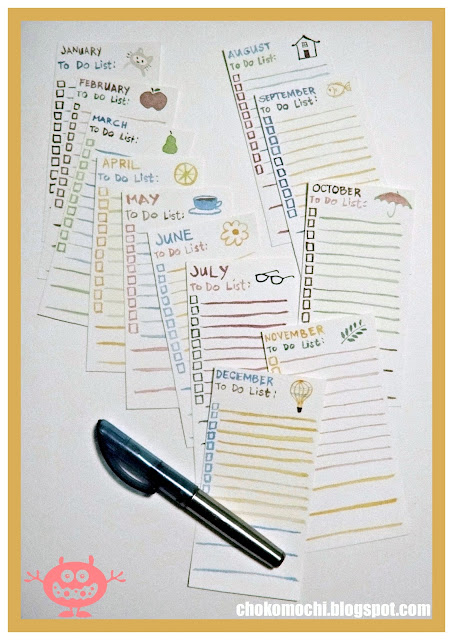 JANUARY
To Do List:
FEBRUARY
To Do List:
MARCH
To Do List:
APRIL
To Do List:
MAY
To Do List:
JUNE
To Do List:
JULY
To Do List:
AUGUST
To Do List:
SEPTEMBER
To Do List:
OCTOBER
To Do List:
NOVEMBER
To Do List:
DECEMBER
To Do List:
chokomochi.blogspot.com